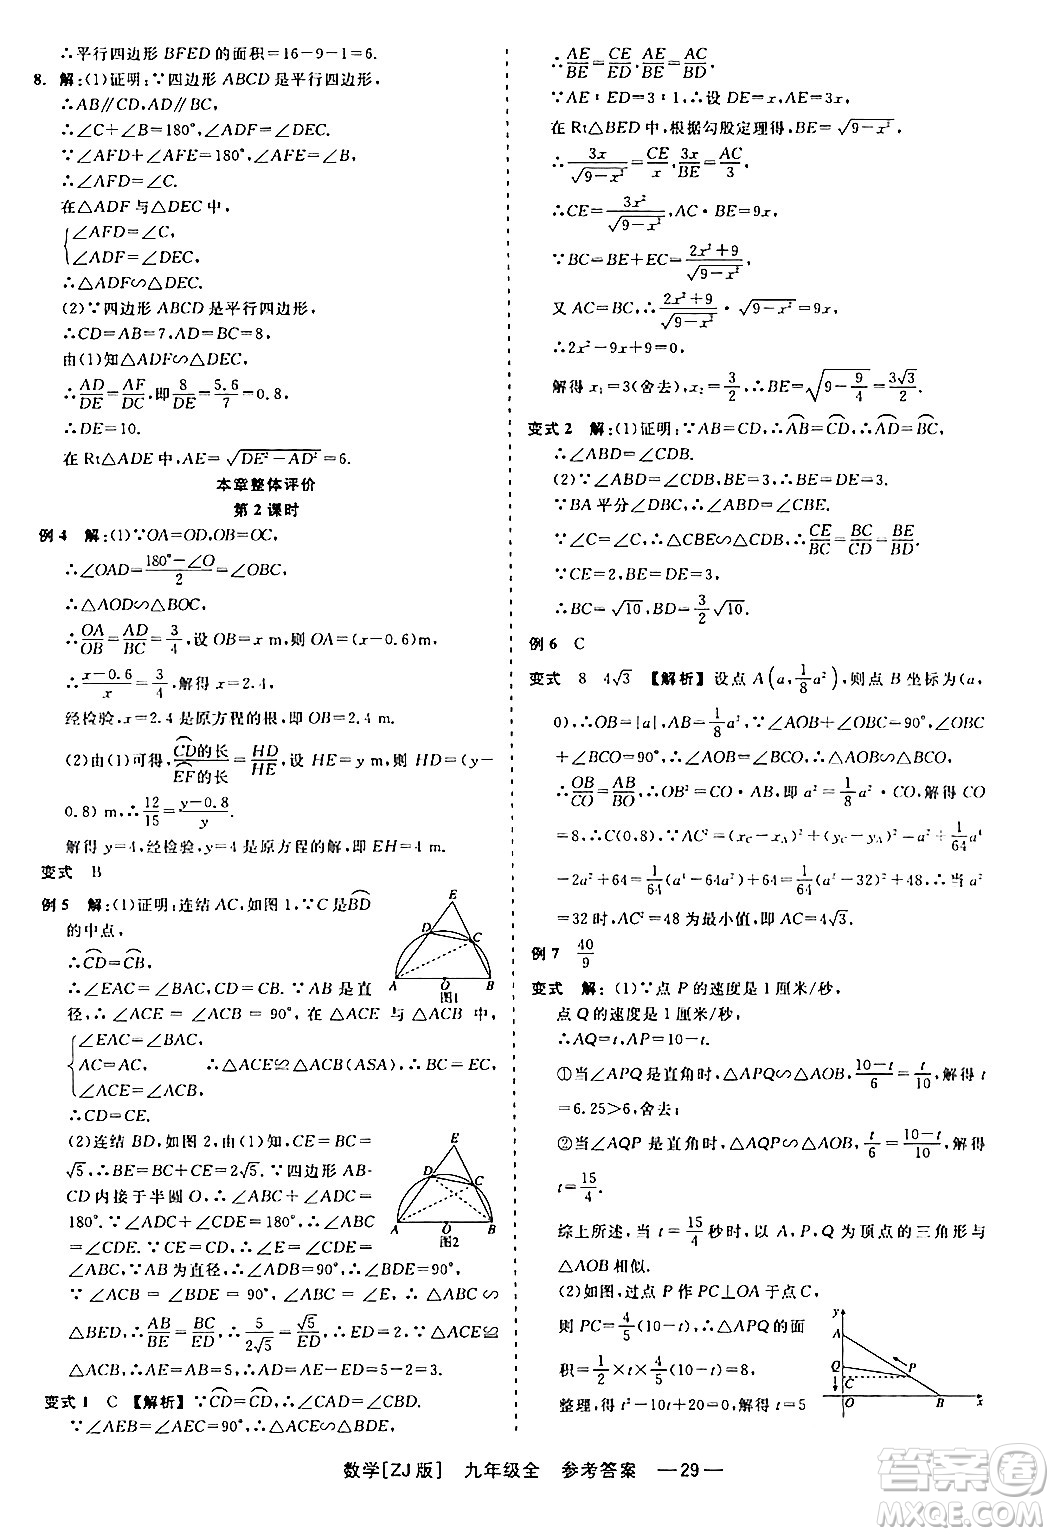 ∴平行四边形 BFED 的面积=16-9-1=6.
8. 解:(1)证明:∵四边形 ABCD 是平行四边形,
∴AB∥CD,AD∥BC,
∴∠C+∠B=180°,∠ADF=∠DEC.
∵∠AFD+∠AFE=180°,∠AFE=∠B,
∴∠AFD=∠C.
在△ADF 与△DEC 中,
{∠AFD=∠C,
∠ADF=∠DEC,
∴△ADF∽△DEC.
(2)∵四边形 ABCD 是平行四边形,
∴CD=AB=7,AD=BC=8,
由(1)知△ADF∽△DEC,
∴AD/DE=AF/DC,即8/DE=5.6/7=0.8,
∴DE=10.
在 Rt△ADE 中,AE=√(DE²-AD²)=6.
本章整体评价
第 2 课时
例 4 解:(1)∵OA=OD,OB=OC,
∴∠OAD=(180°-∠O)/2=∠OBC,
∴△AOD∽△BOC,
∴OA/OB=AD/BC=3/4,设 OB=x m,则 OA=(x-0.6)m,
∴(x-0.6)/x=3/4,解得 x=2.4,
经检验,x=2.4 是原方程的根,即 OB=2.4 m.
(2)由(1)可得,CD的长/EF的长=HD/HE,设 HE=y m,则 HD=(y-
0.8) m,∴12/15=(y-0.8)/y.
解得 y=4,经检验,y=4 是原方程的根,即 EH=4 m.
变式 B
例 5 解:(1)证明:连结 AC,如图 1,∵C 是BD
的中点,
∴CD=CB,
∴∠EAC=∠BAC.∵AB 是直
径,∴∠ACE=∠ACB=90°,在△ACE 与△ACB 中,
{∠EAC=∠BAC,
AC=AC,
∠ACE=∠ACB=90°,
∴△ACE≌△ACB(ASA),∴BC=EC,
∴CD=CE.
(2)连结 BD,如图 2,由(1)知,CE=BC=
√5,∴BE=BC+CE=2√5.∵四边形 AB-
CD 内接于半圆 O,∴∠ABC+∠ADC=
180°.∵∠ADC+∠CDE=180°,∴∠ABC
=∠CDE.∵CE=CD,∴∠E=∠CDE.
∵AB 为直径,∴∠ADB=90°,∴∠BDE
=∠ACB=90°,∴∠ABC=∠E,∴△ABC∽
△BED,∴AB/BE=BC/ED,∴5/2√5=√5/ED,∴ED=5/2... 
E
D
C
A
O
B
图1
E
D
C
A
O
B
图2
变式 1 C 【解析】∵CD=CD,∴∠CAD=∠CBD.
∵∠AEB=∠AEC=90°,∴△ACE∽△BDE,
∴AE/BE=CE/ED,AE/BE=AC/BD.
∵AE∶ED=3∶1,∴设 DE=x,AE=3x,
在 Rt△BED 中,根据勾股定理得,BE=√(9-x²),
∴3x/√(9-x²)=CE/x,3x/BE=AC/3,
∴CE=3x²/√(9-x²),AC·BE=9x,
∵BC=BE+EC=(2x²+9)/√(9-x²),
又 AC=BC,∴(2x²+9)/√(9-x²)·√(9-x²)=9x,
∴2x²-9x+9=0,
解得 x₁=3(舍去),x₂=3/2,∴BE=√(9-9/4)=3√3/2.
变式 2 解:(1)证明:∵AB=CD,∴AB=CD,∴AD=BC,
∴∠ABD=∠CDB.
(2)∵∠ABD=∠CDB,∴BE=DE=3.
∵BA 平分∠DBC,∴∠ABD=∠ABC=∠CDB.
∵∠C=∠C,∴△CBE∽△CDB,∴CE/BC=BC/CD=BE/BD.
∵CE=2,BE=DE=3,∴CD=5,
∴BC=√10,∴BD=3/2√10.
例 6 C
变式 8 4√3 【解析】设点 A(a,1/8a²),则点 B 坐标为(a,
0),∴OB=|a|,AB=1/8a²,∵∠AOB+∠OBC=90°,∠OBC
+∠BCO=90°,∴∠AOB=∠BCO,∴△AOB∽△BCO,
∴OB/CO=AB/BO,∴OB²=CO·AB,即 a²=1/8a²·CO,解得 CO
=8,∴C(0,8),∴AC²=(x_C-x_A)²+(y_C-y_A)²=a²+1/64a⁴
-2a²+64=1/64(a⁴-64a²)+64=1/64(a²-32)²+48,∴当 a²
=32 时,AC²=48 为最小值,即 AC=4√3.
例 7 40/9
变式 解:(1)∵点 P 的速度是 1 厘米/秒,
点 Q 的速度是 1 厘米/秒,
∴AQ=t,AP=10-t.
①当∠APQ 是直角时,△APQ∽△AOB,(10-t)/6=t/10,解得 t
=6.25>6,舍去;
②当∠AQP 是直角时,△AQP∽△AOB,t/6=(10-t)/10,解得
t=15/4.
综上所述,当 t=15/4秒时,以 A,P,Q 为顶点的三角形与
△AOB 相似.
(2)如图,过点 P 作 PC⊥OA 于点 C,
则 PC=4/5(10-t),∴△APQ 的面
积=1/2×t×4/5(10-t)=8,
整理,得 t²-10t+20=0,解得 t=5
y
A
Q
P
C
O
B
x
数学[ZJ版] 九年级全 参考答案 —29—
答案圈
MXQE.COM